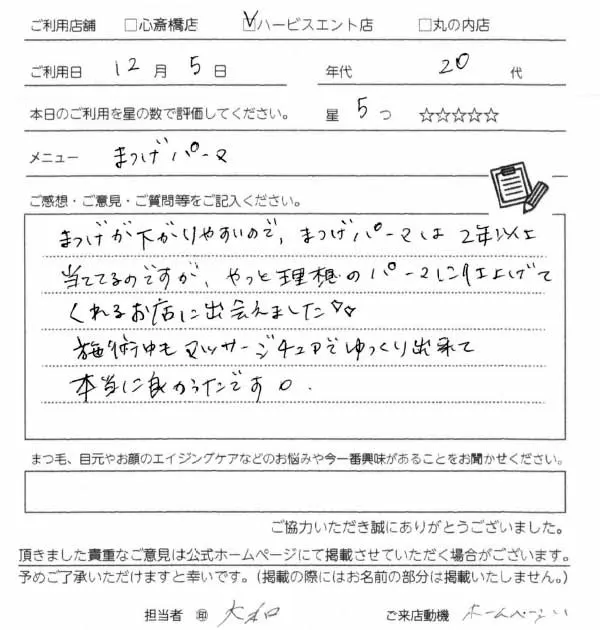 ご利用店舗 □心斎橋店 ☑ハービスエント店 □丸の内店
ご利用日 12月 5日 年代 20代
本日のご利用を星の数で評価してください。 星 5つ ☆☆☆☆☆
メニュー まつげパーマ
ご感想・ご意見・ご質問等をご記入ください。
まつげが下がりやすいので、まつげパーマは2年以上
当ててるのですが、やっと理想のパーマに仕上げて
くれるお店に出会えました♡♡
施術中もマッサージチェアでゆっくり出来て
本当に良かったです。
まつ毛、目元やお顔のエイジングケアなどのお悩みや今一番興味があることをお聞かせください。
ご協力いただき誠にありがとうございました。
頂きました貴重なご意見は公式ホームページにて掲載させていただく場合がございます。
予めご了承いただけますと幸いです。(掲載の際にはお名前の部分は掲載いたしません。)
担当者 ㊞ 大和 ご来店動機 ホームページ